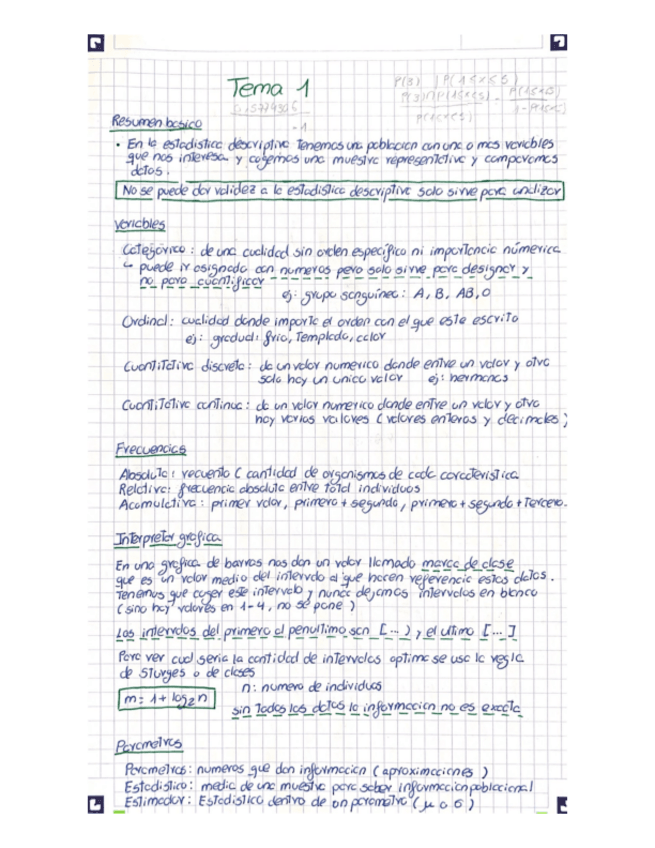 Tema 1
Resumen basico
• En la estadistica descriptiva tenemos una poblacion con una o mas variables
que nos interesa y cogemos una muestra representativa y comparamos
datos.
No se puede dar validez a la estadistica descriptiva solo sirve para analizar
Variables
Categórica: de una cualidad sin orden específico ni importancia númerica
↳ puede ir asignada con numeros pero solo sirve para designar y
no para cuantificar
ej: grupo sanguíneo: A, B, AB, O
Ordinal: cualidad donde importa el orden con el que este escrito
ej: gradual: frio, templado, calor
Cuantitativa discreta: da un valor numerico donde entre un valor y otro
solo hay un unico valor ej: hermanos
Cuantitativa continua: da un valor numerico donde entre un valor y otro
hay varios valores (valores enteros y decimales)
Frecuencias
Absoluta: recuento (cantidad de organismos de cada caracteristica
Relativa: frecuencia absoluta entre total individuos
Acumulativa: primer valor, primero + segundo, primero + segundo + tercero.
Interpretar grafica
En una grafica de barras nos dan un valor llamado marca de clase
que es un valor medio del intervalo al que hacen referencia estos datos.
Tenemos que coger este intervalo y nunca dejamos intervalos en blanco
(sino hay valores en 1-4, no se pone)
Los intervalos del primero al penultimo son [...), el ultimo [...]
Para ver cual seria la cantidad de intervalos optima se usa la regla
de Sturges o de clases
m = 1 + log₂ n
n: numero de individuos
sin todos los datos la informacion no es exacta
Parametros
Parametros: numeros que dan informacion (aproximaciones)
Estadistico: media de una muestra para saber informacion poblacional
Estimador: Estadistico dentro de un parametro (μ o σ)